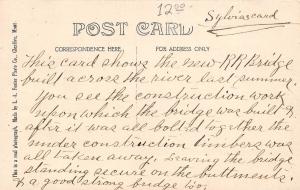 12.00
Sylvias card
POST CARD
CORRESPONDENCE HERE
FOR ADDRESS ONLY
This card shows the new RR Bridge
built across the river last summer.
You see the construction work
upon which the bridge was built &
after it was all bolted together the
under construction timbers was
all taken away. Leaving the bridge
standing secure on the buttments.
& a good strong bridge too.
This is a real photograph, Made by L. A. Foster Photo Co.,